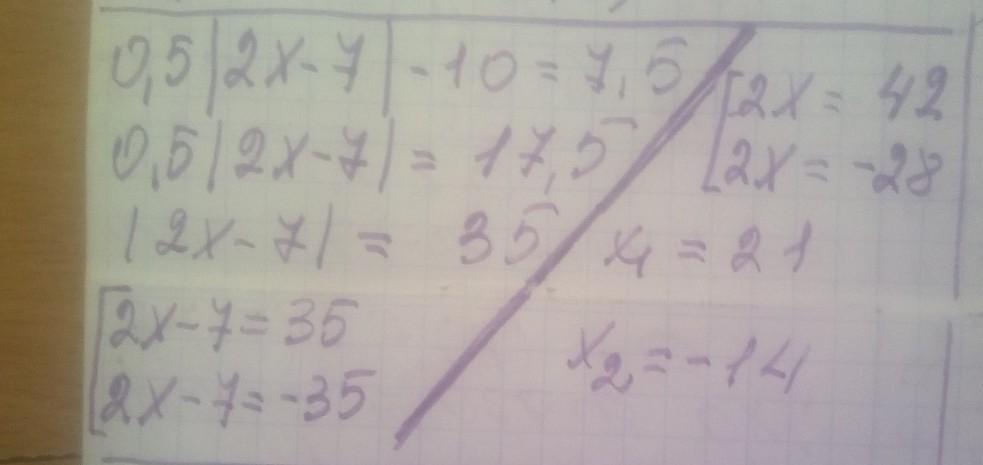 0,5|2x-7|-10=7,5
0,5|2x-7|= 17,5
|2x-7|= 35
[2x-7=35
[2x-7=-35
[2x= 42
[2x= -28
x₁ = 21
x₂=-14